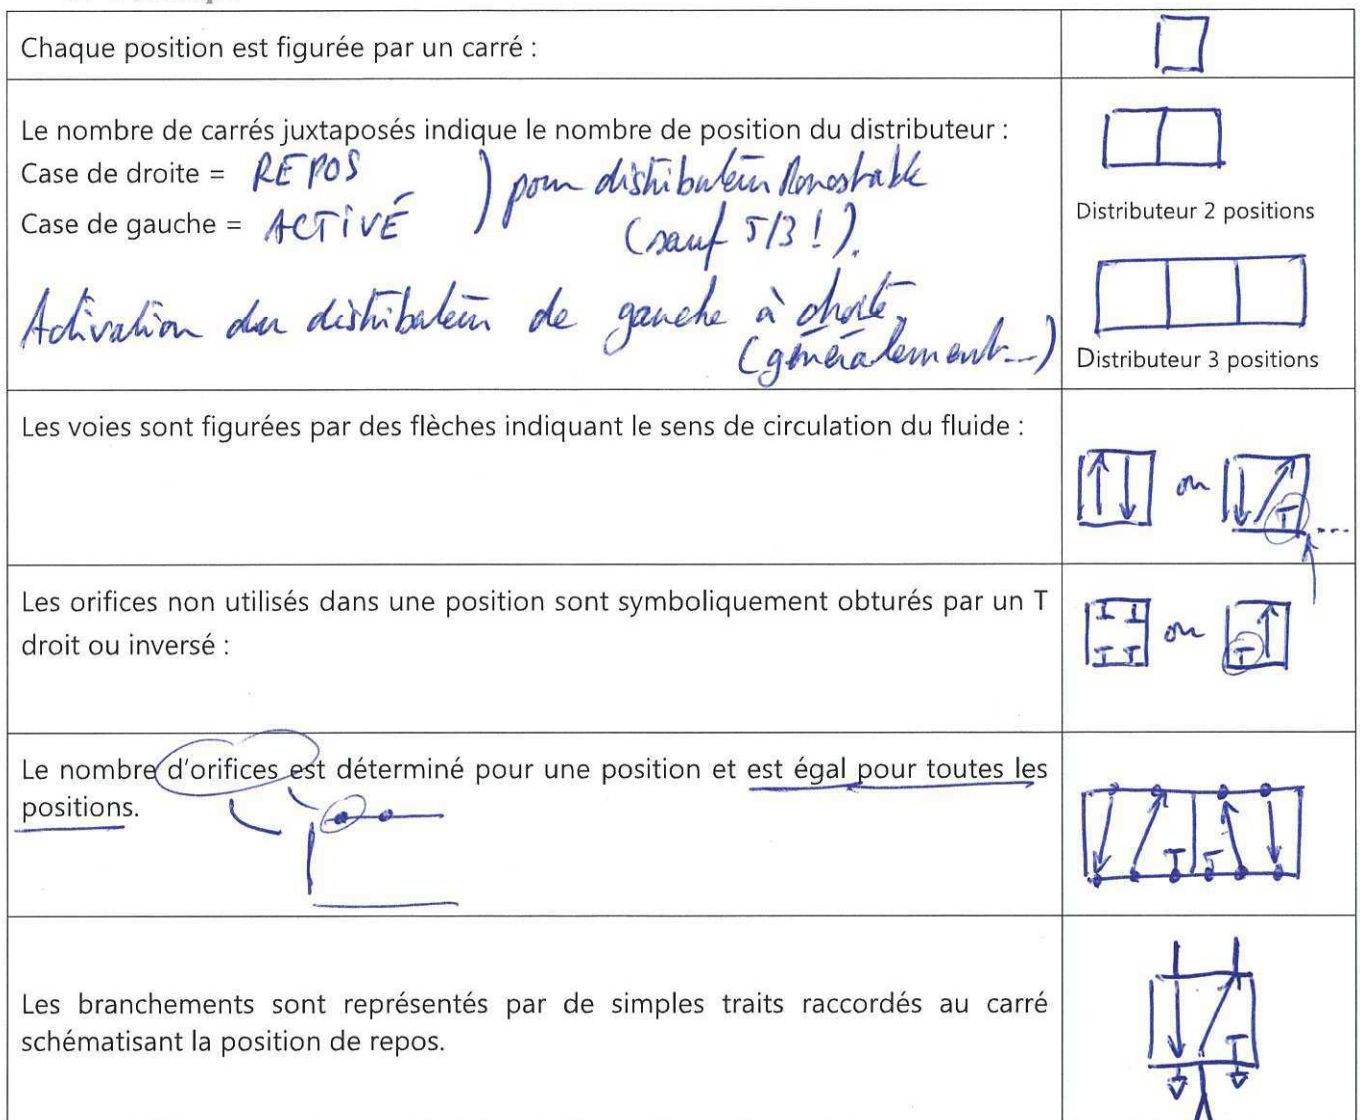 Chaque position est figurée par un carré :
Le nombre de carrés juxtaposés indique le nombre de position du distributeur :
Case de droite = REPOS
Case de gauche = ACTIVÉ
) pour distributeur Monostable
(sauf 5/3 !).
Activation du distributeur de gauche à droite
(généralement...)
Distributeur 2 positions
Distributeur 3 positions
Les voies sont figurées par des flèches indiquant le sens de circulation du fluide :
ou
T
....
Les orifices non utilisés dans une position sont symboliquement obturés par un T
droit ou inversé :
ou
T
Le nombre d'orifices est déterminé pour une position et est égal pour toutes les
positions.
T T
Les branchements sont représentés par de simples traits raccordés au carré
schématisant la position de repos.
T